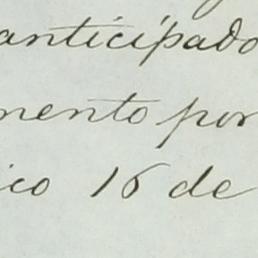 anticipado
mento por
ico 16 de